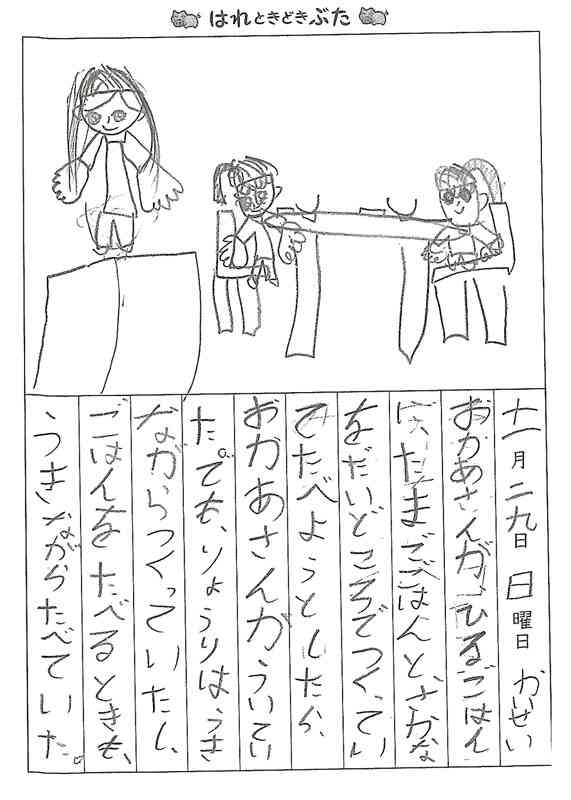 はれときどきぶた
十一月二九日 日曜日 かいせい
おかあさんがひるごはん
にたまごごはんと、さかな
をだいどころでつくってい
てたべようとしたら、
おかあさんがういてい
た。でも、りょうりは、うき
ながらつくっていたし、
ごはんをたべるときも、
うきながらたべていた。